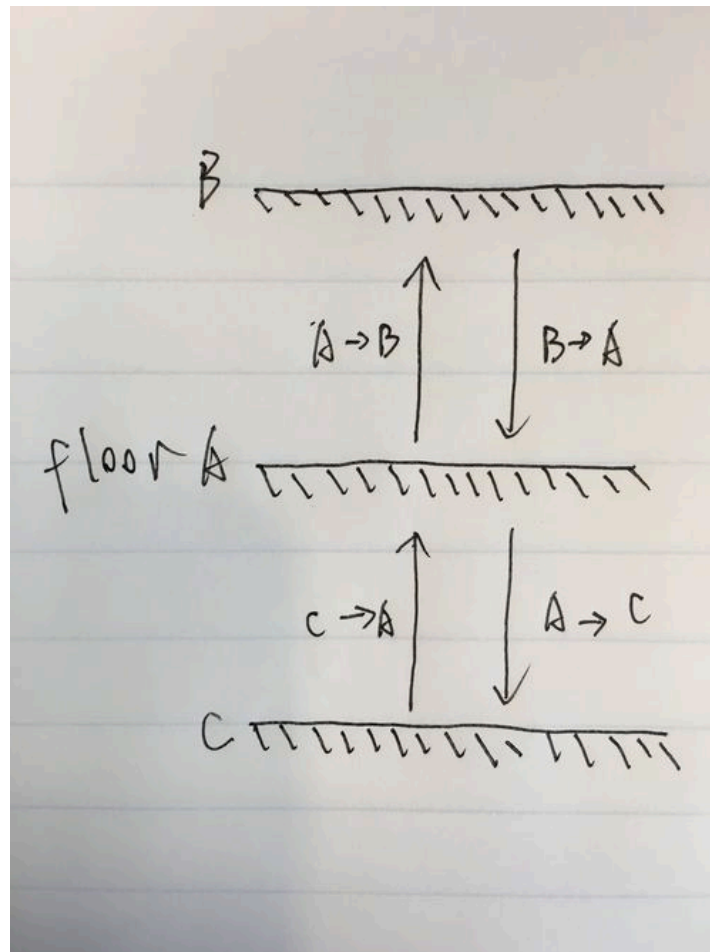 B
A→B
B→A
floor A
C→A
A→C
C